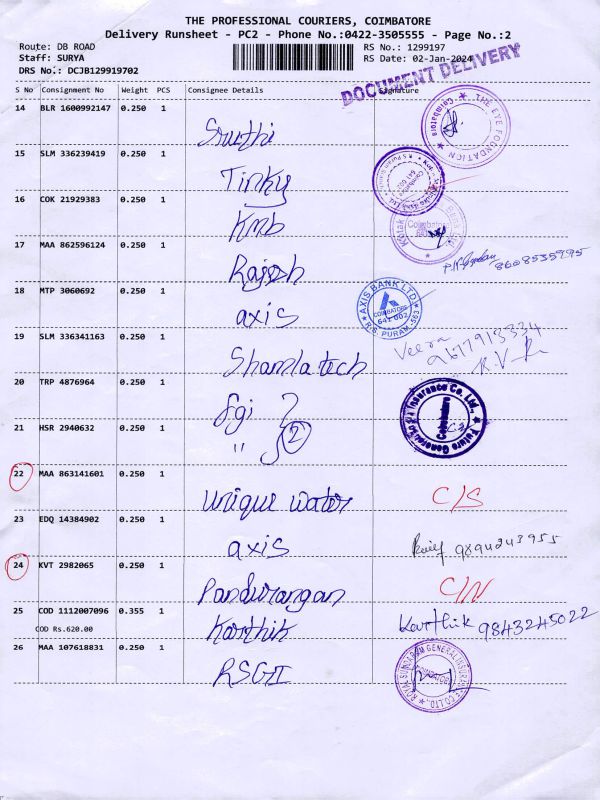 THE PROFESSIONAL COURIERS, COIMBATORE
Delivery Runsheet - PC2 - Phone No.:0422-3505555 - Page No.:2
Route: DB ROAD RS No.: 1299197
Staff: SURYA RS Date: 02-Jan-2024
DRS No.: DCJB129919702
DOCUMENT DELIVERY
S No Consignment No Weight PCS Consignee Details Signature
14 BLR 1600992147 0.250 1 Sruthi
THE EYE FOUNDATION Coimbatore
15 SLM 336239419 0.250 1 Tinky
Coimbatore 641 002
16 COK 21929383 0.250 1 Kmb
Kotak Bank Ltd. Coimbatore
17 MAA 862596124 0.250 1 Rajesh 8608535995
18 MTP 3060692 0.250 1 axis
AXIS BANK LTD. COIMBATORE 641 002 R.S. PURAM-563
19 SLM 336341163 0.250 1 Shamla tech Veera
20 TRP 4876964 0.250 1 fgi
Future Generali India Insurance Co. Ltd., Coimbatore
21 HSR 2940632 0.250 1 " 2
22 MAA 863141601 0.250 1 Unique water C/S
23 EDQ 14384902 0.250 1 axis 9894243955
24 KVT 2982065 0.250 1 Pandurangan C/N
25 COD 1112007096 0.355 1 Karthik Karthik 9843245022
COD Rs.620.00
26 MAA 107618831 0.250 1 RSGI
ROYAL SUNDARAM GENERAL INSURANCE CO. LTD., COIMBATORE